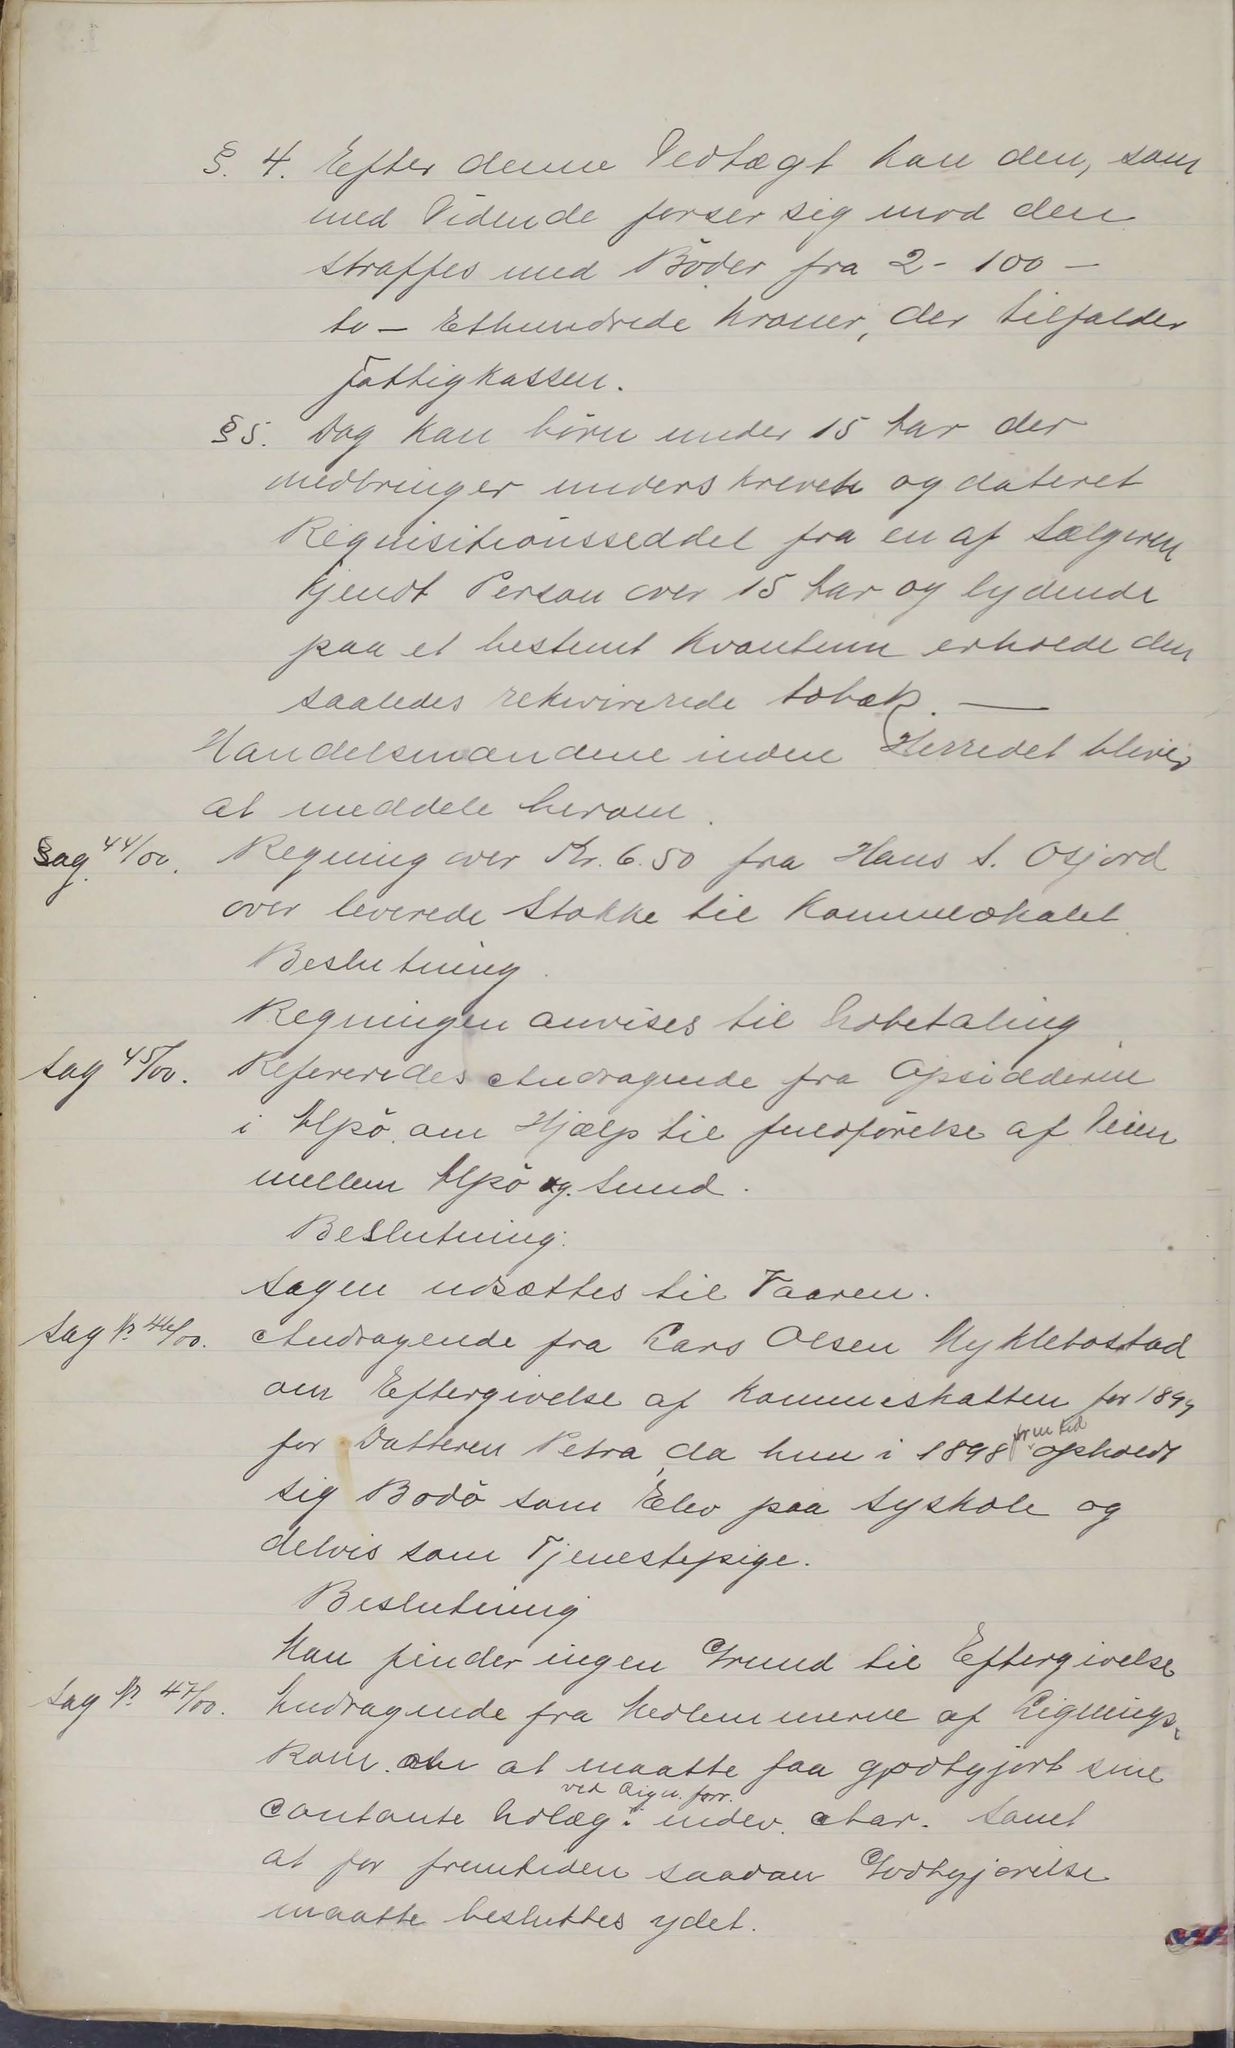 §. 4. Efter denne Vedtægt kan den, som
med Vidende forser sig mod den
straffes med Böder fra 2 - 100 —
to — Ethundrede Kroner, der tilfalder
Fattigkassen.
§ 5. Dog kan börn under 15 Aar der
medbringer underskreven og dateret
Requisitionsseddel fra en af Sælgeren
kjendt Person over 15 Aar og lydende
paa et bestemt Kvantum erholde den
saaledes rekvirerede tobak. —
Handelsmændene inden Herredet bliver
at meddele herom.
Sag 44/00. Regning over Kr. 6.50 fra Hans S. Osjord
over leverede Stokke til Komunelokalet
Beslutning.
Regningen anvises til Udbetaling
Sag 45/00. Refereredes Andragende fra Opsidderne
i Alpö om Hjælp til fuldförelse af Veien
mellem Alpö og Sund.
Beslutning.
Sagen udsættes til Vaaren.
Sag № 46/00. Andragende fra Lars Olsen Myklebostad
om Eftergivelse af Komuneskatten for 1899
for Datteren Petra, da hun i 1898 opholdt
sig Bodö som Elev paa Syskole og
delvis som Tjenestepige.
Beslutning
Man finder ingen Grund til Eftergivelse
Sag № 47/00. Andragende fra Medlemmerne af Lignings-
kom. om at maatte faa godtgjort sine
ved Lign. forr.
contante Udlæg indev. Aar. Samt
at for fremtiden saadan Godtgjörelse
maatte besluttes ydet.